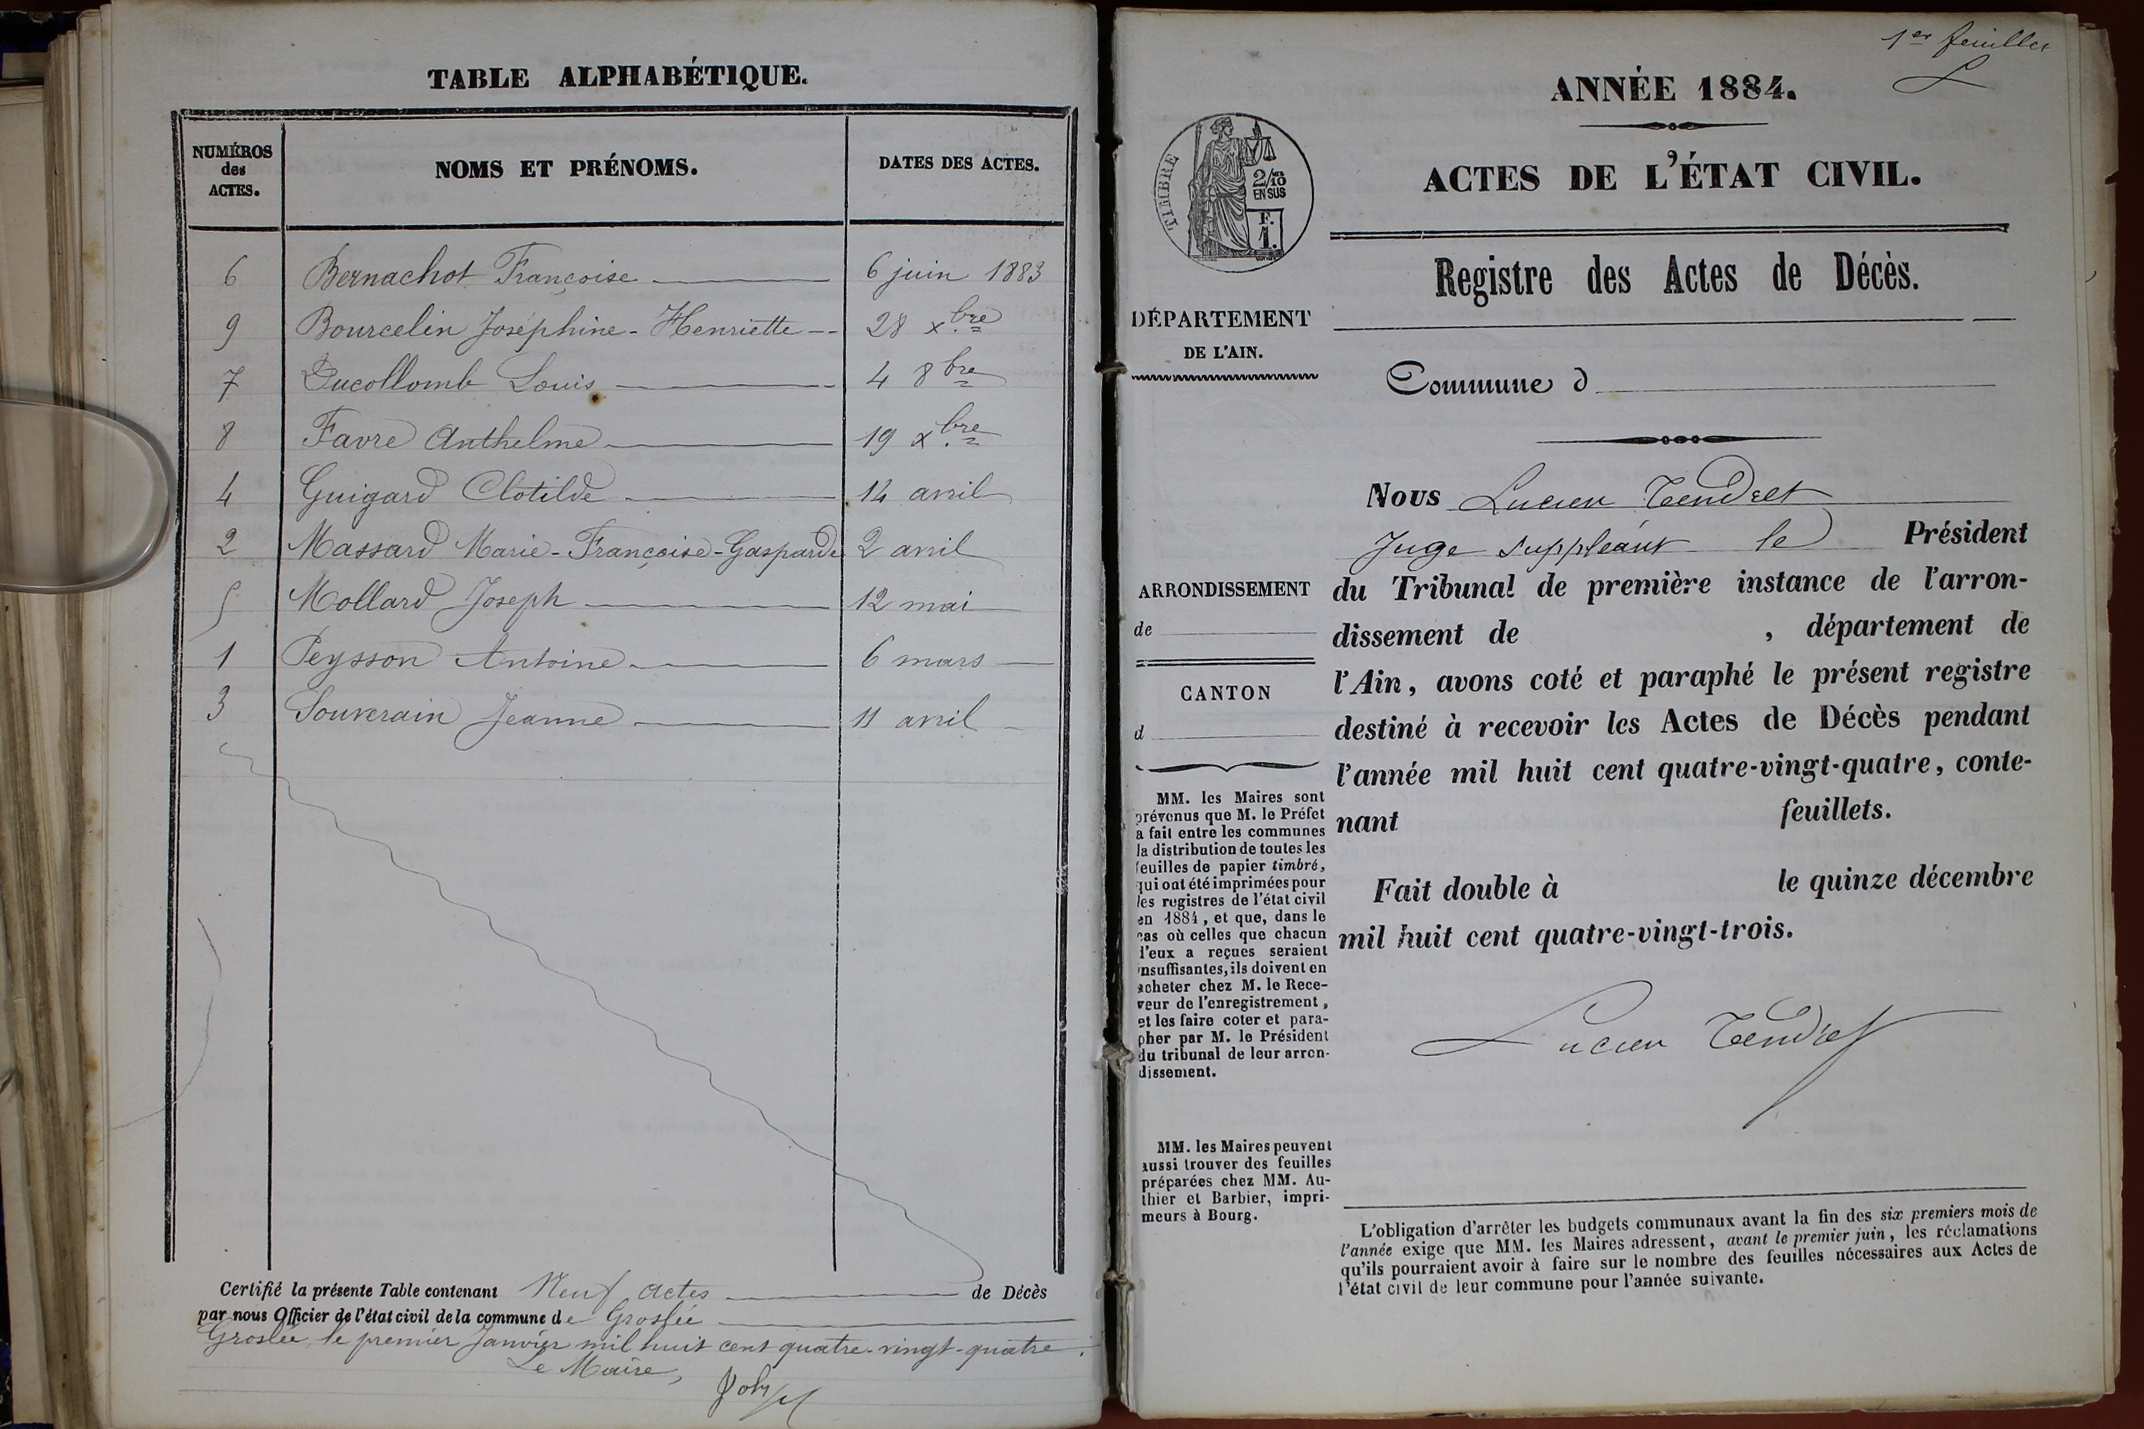 TABLE ALPHABÉTIQUE.
NUMÉROS des ACTES. NOMS ET PRÉNOMS. DATES DES ACTES.
6 Bernachot Françoise 6 juin 1883
9 Bourcelin Joséphine-Henriette 28 xbre
7 Ducollomb Louis 4 8bre
8 Favre Anthelme 19 xbre
4 Guigard Clotilde 14 avril
2 Massard Marie-Françoise-Gasparde 2 avril
5 Mollard Joseph 12 mai
1 Peysson Antoine 6 mars
3 Souverain Jeanne 11 avril
Certifié la présente Table contenant Neuf actes de Décès
par nous Officier de l'état civil de la commune de Groslée
Groslée, le premier Janvier mil huit cent quatre-vingt-quatre.
Le Maire,
1er feuillet
ANNÉE 1884.
ACTES DE L'ÉTAT CIVIL.
TIMBRE
2/10
EN SUS
F.
1.
Registre des Actes de Décès.
DÉPARTEMENT
DE L'AIN.
Commune d
Nous Lucien Tendret
Juge suppléant le Président
du Tribunal de première instance de l'arron-
dissement de , département de
l'Ain, avons coté et paraphé le présent registre
destiné à recevoir les Actes de Décès pendant
l'année mil huit cent quatre-vingt-quatre, conte-
nant feuillets.
Fait double à le quinze décembre
mil huit cent quatre-vingt-trois.
Lucien Tendret
ARRONDISSEMENT
de
CANTON
d
MM. les Maires sont
prévenus que M. le Préfet
a fait entre les communes
la distribution de toutes les
feuilles de papier timbré,
qui ont été imprimées pour
les registres de l'état civil
en 1884, et que, dans le
cas où celles que chacun
d'eux a reçues seraient
insuffisantes, ils doivent en
acheter chez M. le Rece-
veur de l'enregistrement,
et les faire coter et para-
pher par M. le Président
du tribunal de leur arron-
dissement.
MM. les Maires peuvent
aussi trouver des feuilles
préparées chez MM. Au-
thier et Barbier, impri-
meurs à Bourg.
L'obligation d'arrêter les budgets communaux avant la fin des six premiers mois de
l'année exige que MM. les Maires adressent, avant le premier juin, les réclamations
qu'ils pourraient avoir à faire sur le nombre des feuilles nécessaires aux Actes de
l'état civil de leur commune pour l'année suivante.